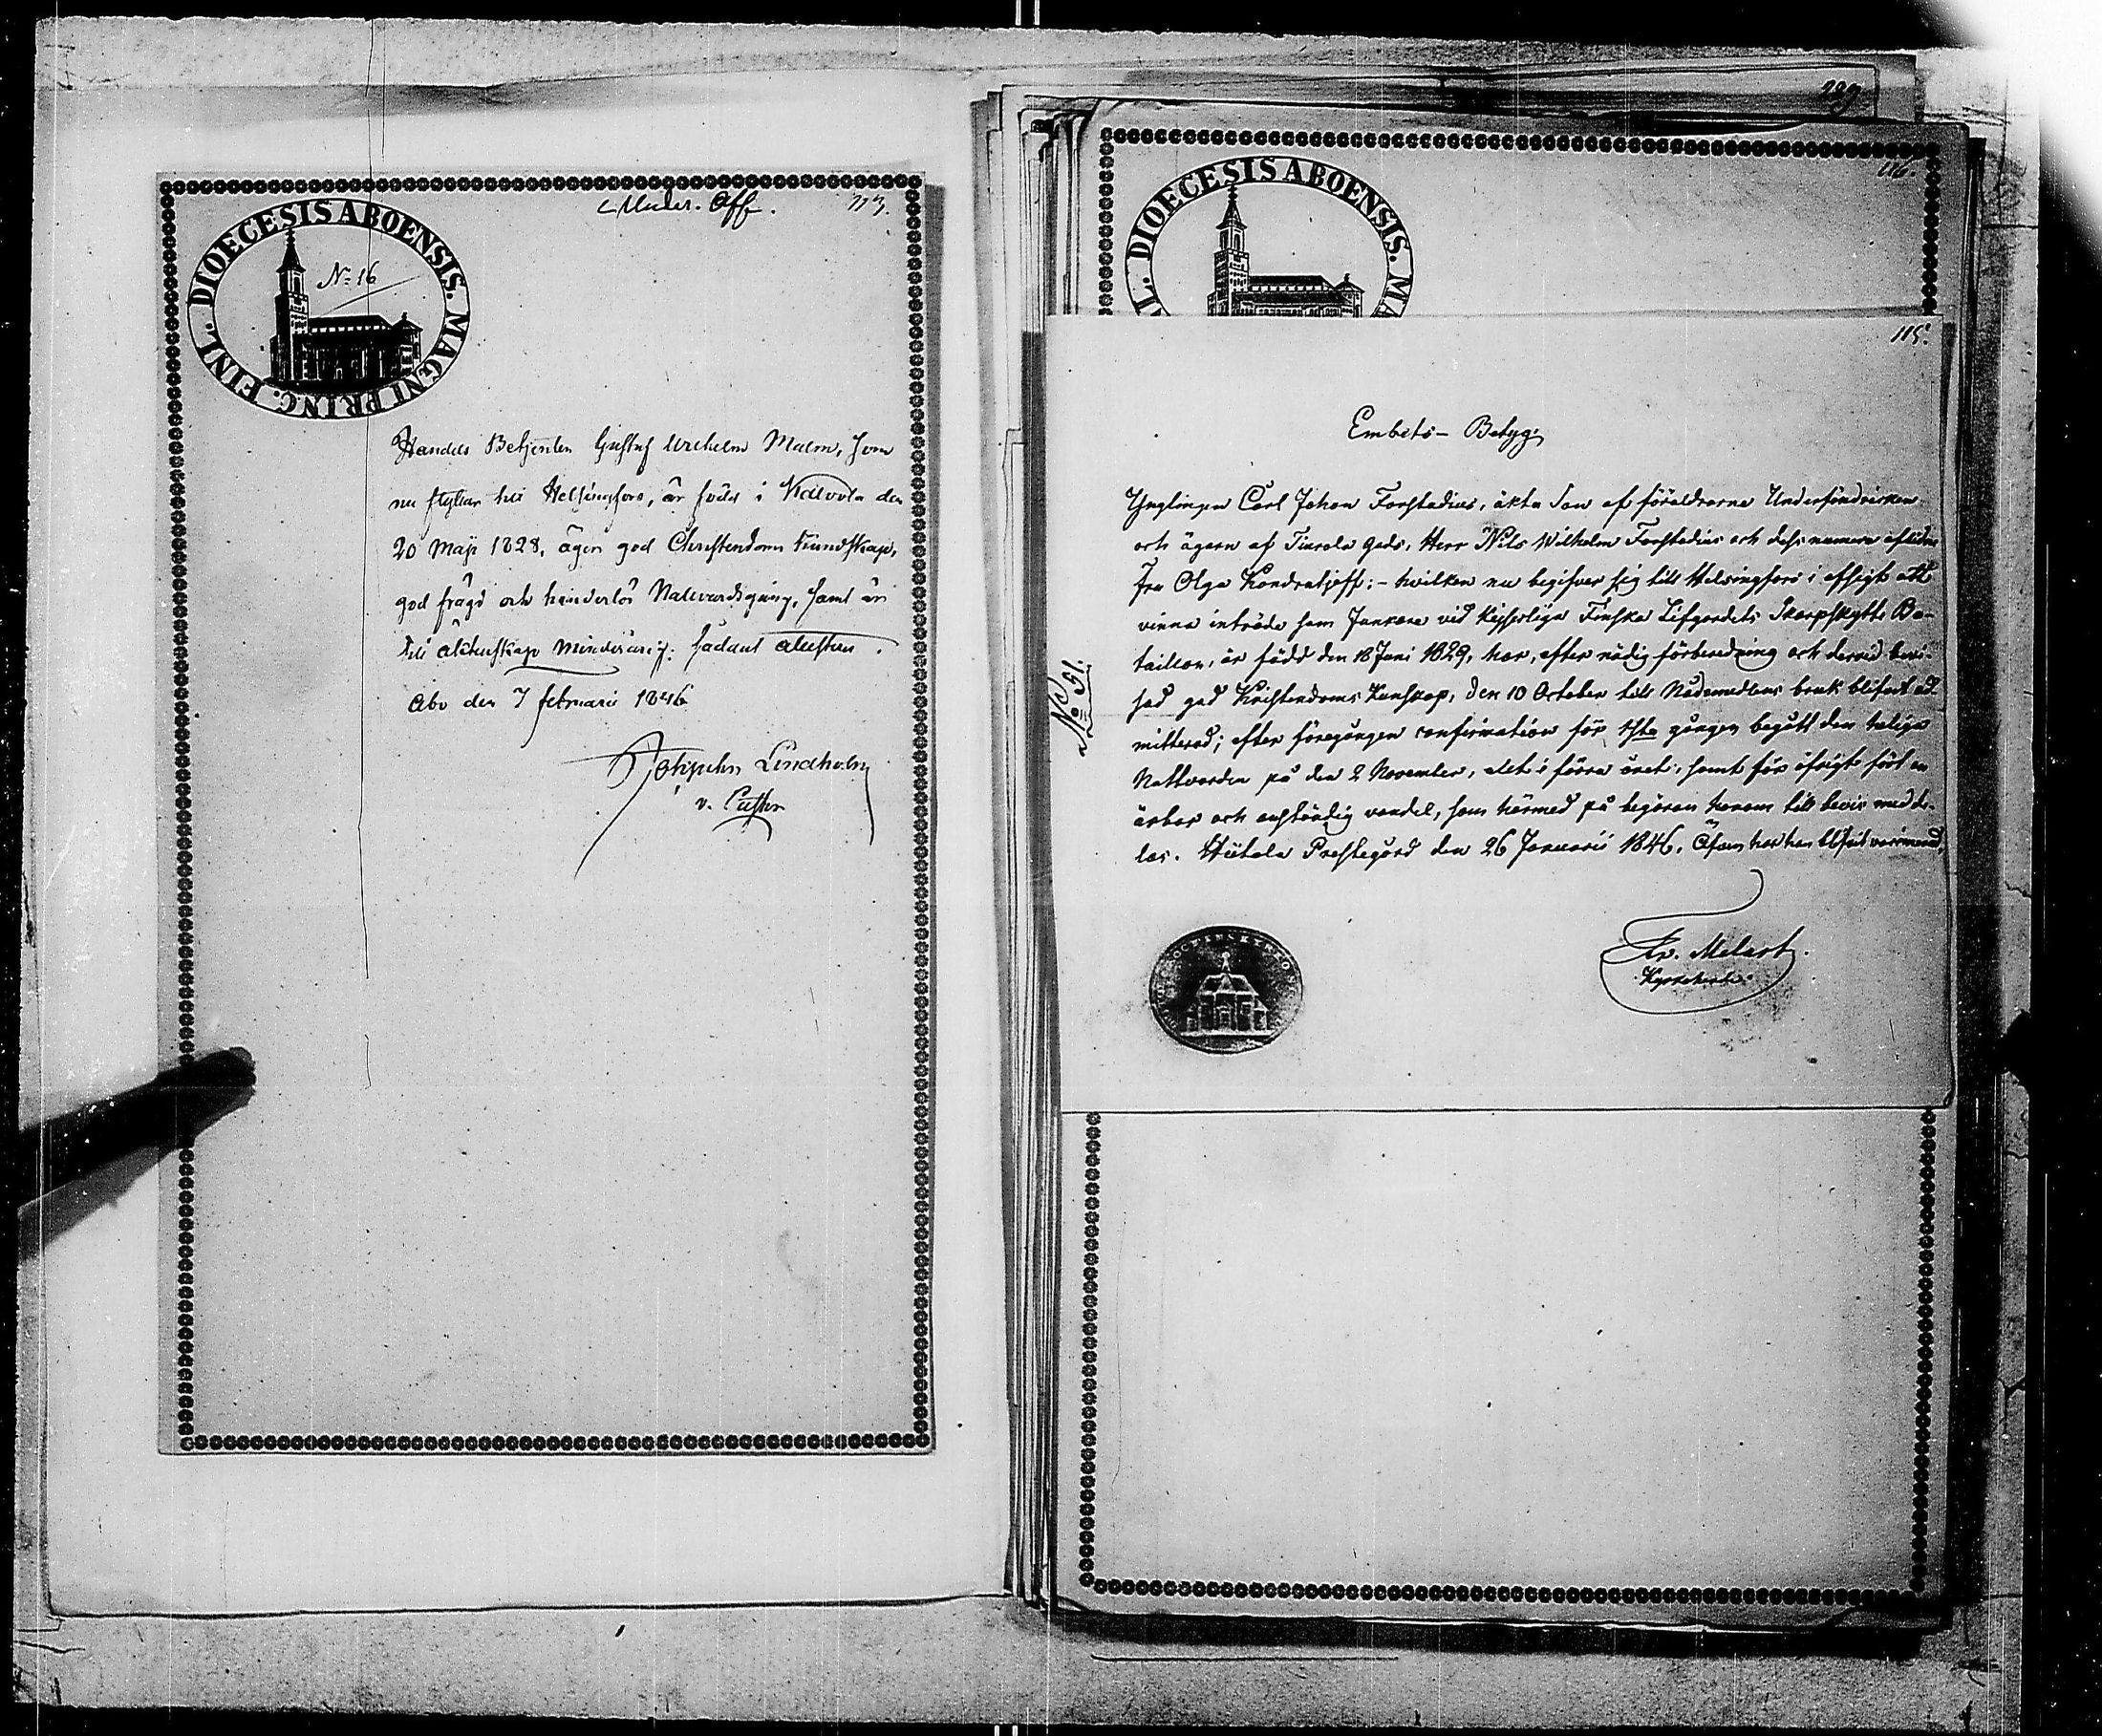 113.
DIOECESIS ABOENSIS. MAGNI PRINC. FINL.
N:16
Handels Betjenten Gustaf Wilhelm Malm, som
nu flyttar till Helsingfors, är född i Kalvola den
20 Maji 1828, äger god Christendoms kunskap,
god frägd och hinderlös Nattvardsgång, samt är
till äktenskap minderårig: sådant attesteras.
Åbo den 7 februarii 1846
Lindholm
v. Pastor
229
116.
DIOECESIS ABOENSIS. MA
115.
Embets-Betyg.
Ynglingen Carl Johan Forstadius, äkta Son af föräldrarne
och ägaren af Tiurala gods, Herr Nils Wilhelm Forstadius och dess numera aflidne
Fru Olga Kondratjeff; - hvilken nu begifver sig till Helsingfors i afsigt att
vinna inträde som Junkare vid Kejserliga Finska Lifgardets Skarpskytte Ba-
taillon, är född den 18 Juni 1829, har, efter nödig förberedning och dervid bevi-
sad god Kristendoms Kunskap, den 10 October till Nådemedlens bruk blifvit ad-
mitterad; efter föregången confirmation för 1sta gången begått den heliga
Nattvarden på den 2 November, allt i förra året; samt för öfrigt fört en
ärbar och anständig vandel, som härmed på begäran honom till bevis medde-
las. Hiitola Prestegård den 26 Januarii 1846. Äfven har han blifvit vaccinerad.
N:o 51.
Fr. Melart.
Kyrkoherde.